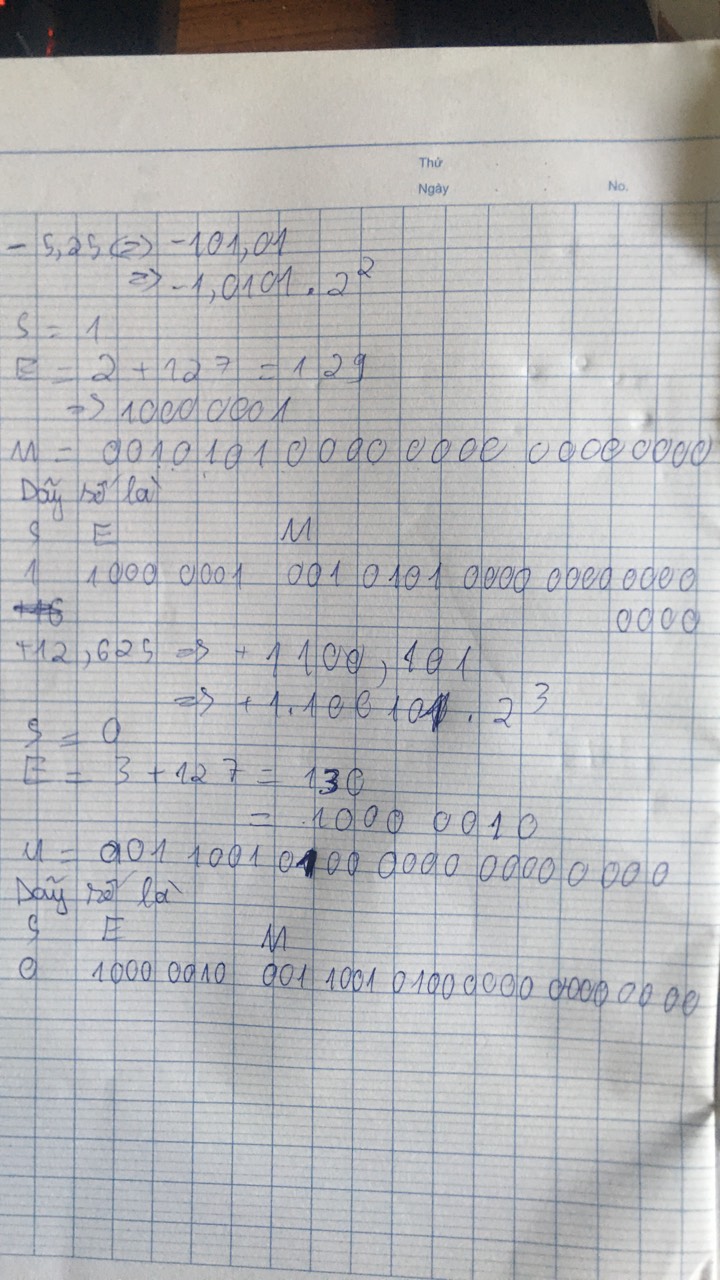 Thứ
Ngày No.
- 5,25 (=) -101,01
=> -1,0101 . 2²
S = 1
E = 2 + 127 = 129
=> 1000 0001
M = 0010101 0000 0000 0000 0000
Dãy số là
S E M
1 1000 0001 001 0101 0000 0000 0000
0000
+12,625 => +1100,101
=> +1.100101 . 2³
S = 0
E = 3 + 127 = 130
= 1000 0010
M = 001 1001 0100 0000 0000 0000
Dãy số là
S E M
0 1000 0010 001 1001 01000000 0000 0000